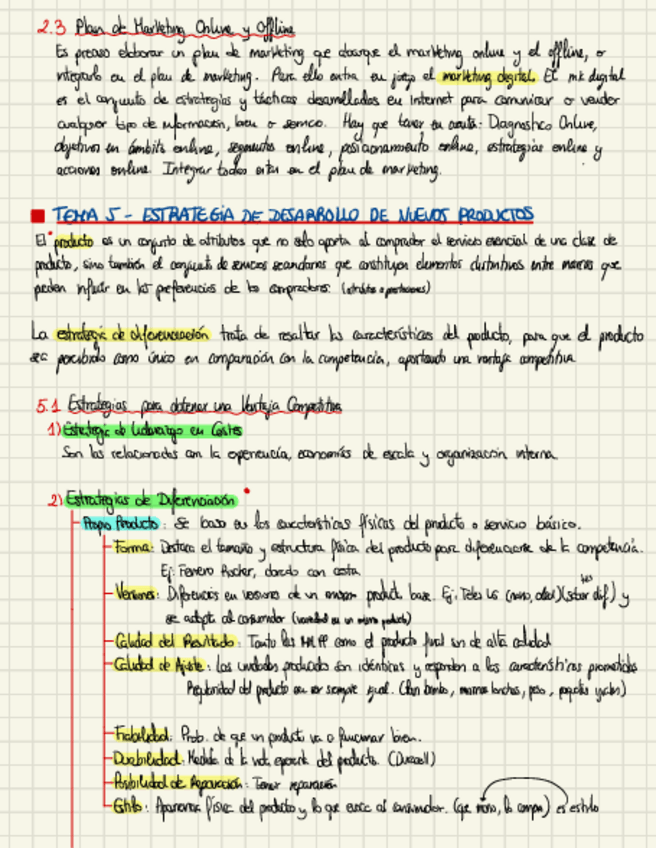 2.3 Plan de Marketing Online y Offline
Es preciso elaborar un plan de marketing que abarque el marketing online y el offline, o
integrarlo en el plan de marketing. Para ello entra en juego el marketing digital. El mk digital
es el conjunto de estrategias y tácticas desarrolladas en Internet para comunicar o vender
cualquier tipo de información, bien o servicio. Hay que tener en cuenta: Diagnostico Online,
objetivos en ámbitos online, segmentos online, posicionamiento online, estrategias online y
acciones online. Integrar todos en el plan de marketing.
TEMA 5 - ESTRATEGIA DE DESARROLLO DE NUEVOS PRODUCTOS
El producto es un conjunto de atributos que no solo aporta al comprador el servicio esencial de una clase de
producto, sino también el conjunto de servicios secundarios que constituyen elementos distintivos entre marcas que
pueden influir en las preferencias de los compradores.
La estrategia de diferenciación trata de resaltar las características del producto, para que el producto
sea percibido como único en comparación con la competencia, aportando una ventaja competitiva
5.1 Estrategias para obtener una Ventaja Competitiva
1) Estrategia de Liderazgo en Costes
Son las relacionadas con la experiencia, economías de escala y organización interna.
2) Estrategias de Diferenciación
Propio Producto: Se basa en las características físicas del producto o servicio básico.
Forma: Destaca el tamaño y estructura física del producto para diferenciarse de la competencia.
Ej: Ferrero Rocher, dorado con
Versiones: Diferencias en versiones de un mismo product. base. Ej: Teles LG y
se adapta al consumidor (variedad en un mismo producto)
Calidad del Resultado: Tanto las MMPP como el producto final son de alta calidad
Calidad de Ajuste: Las unidades producidas son idénticas y responden a las características prometidas
Regularidad del producto en ser siempre igual.
Fiabilidad: Prob. de que un producto va a funcionar bien.
Durabilidad: Medida de la vida operante del producto. (Duracell)
Posibilidad de Reparación: Tener reparación
Estilo: Apariencia física del producto y lo que evoca al consumidor. es estilo